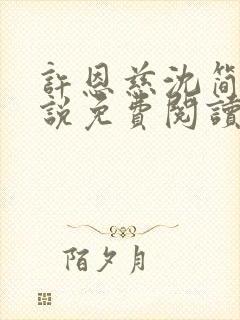 許恩慈沈簡
說免費閱讀
陌夕月